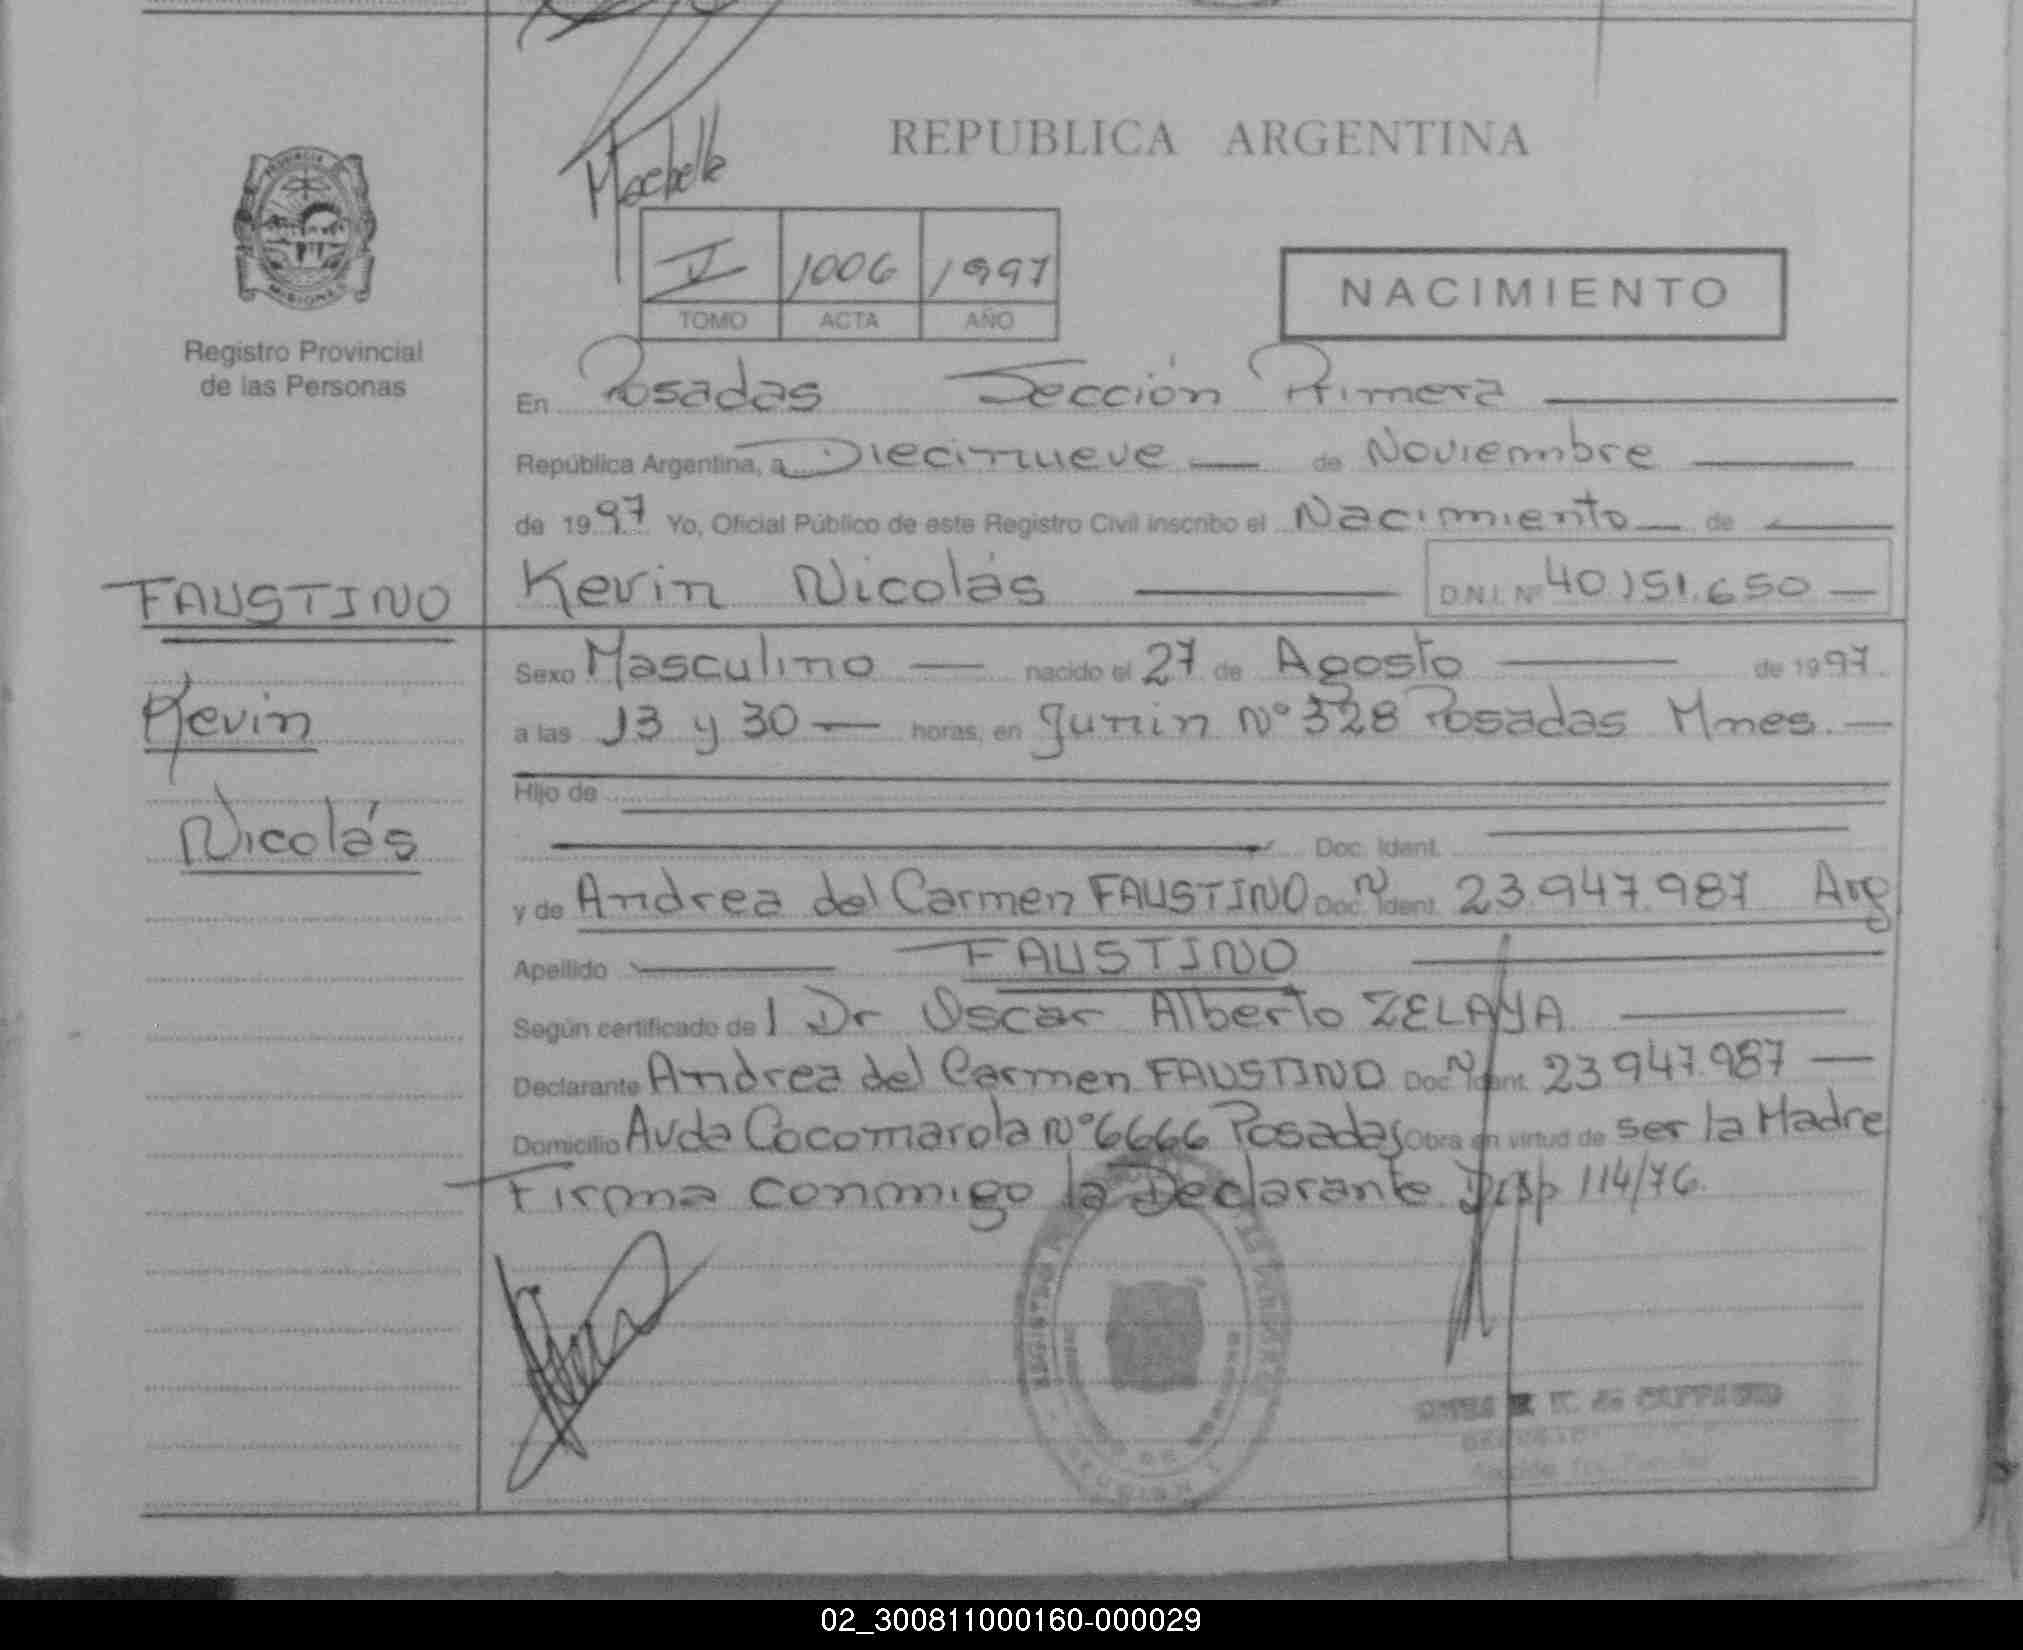 Machella
REPUBLICA ARGENTINA
PROVINCIA
MISIONES
1006 1997
TOMO ACTA AÑO
NACIMIENTO
Registro Provincial
de las Personas
En Posadas Sección Primera
República Argentina, a Diecinueve de Noviembre
de 1997 Yo, Oficial Público de este Registro Civil inscribo el Nacimiento de
FAUSTINO
Kevin Nicolás D.N.I. Nº 40.151.650
Kevin
Nicolás
Sexo Masculino nacido el 27 de Agosto de 1997
a las 13 y 30 horas, en Junin Nº 328 Posadas Mnes.
Hijo de
Doc. Ident.
y de Andrea del Carmen FAUSTINO Doc. Ident. N 23.947.987 Arg
Apellido FAUSTINO
Según certificado de l Dr Oscar Alberto ZELAYA
Declarante Andrea del Carmen FAUSTINO Doc. Ident. N 23 947.987
Domicilio Avda Cocomarola Nº 6666 Posadas Obra en virtud de ser la Madre
Firma conmigo la Declarante Disp 114/76.
02_300811000160-000029